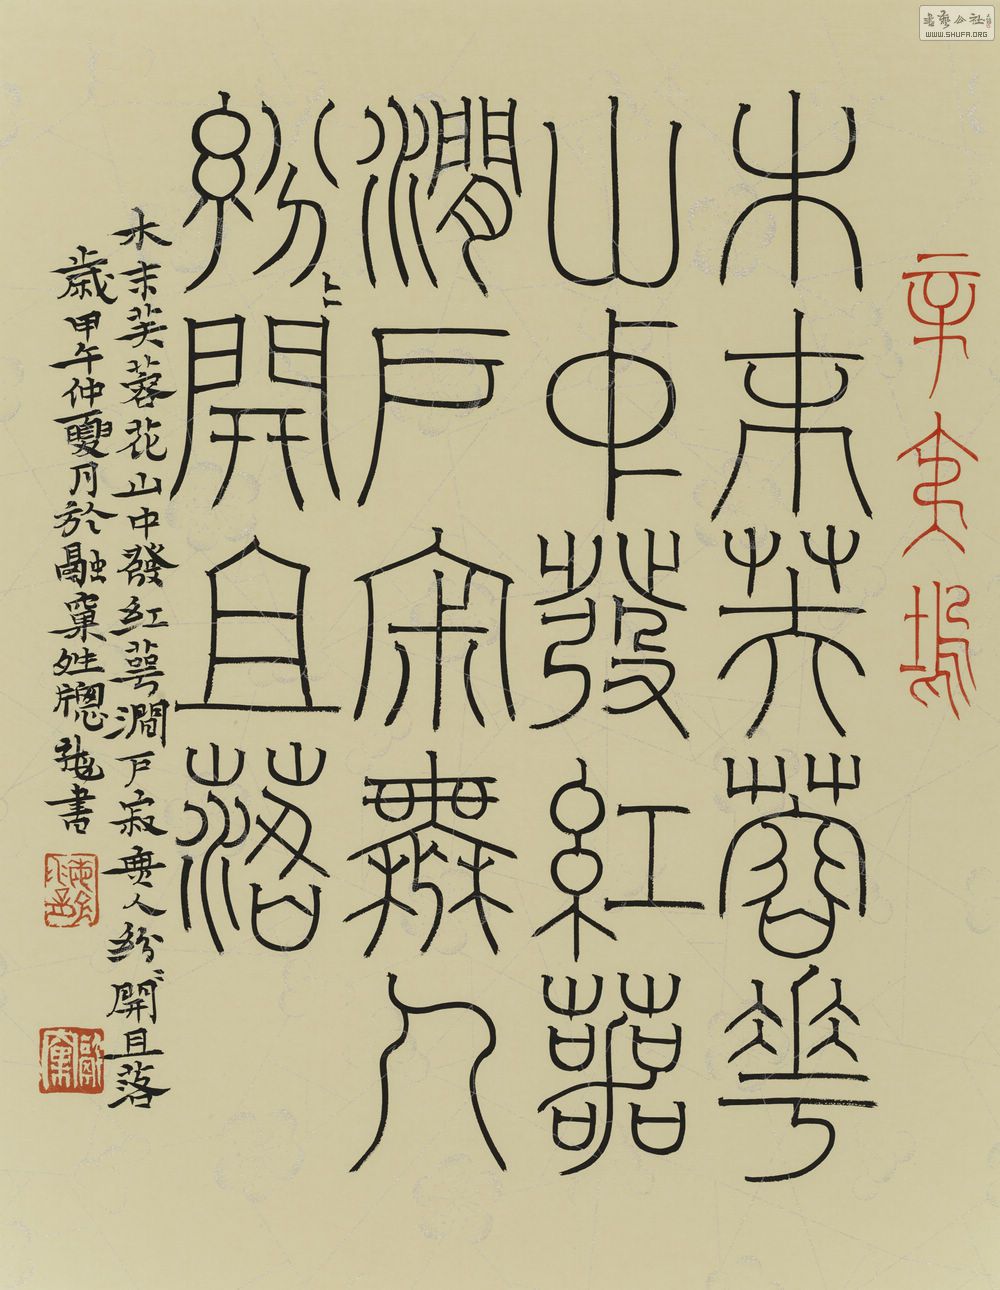 辛夷塢
木末芙蓉花
山中發紅萼
澗戶寂無人
紛〻開且落
木末芙蓉花山中發紅萼澗戶寂無人紛〻開且落
歲甲午仲夏月於融窠
書
WWW.SHUFA.ORG